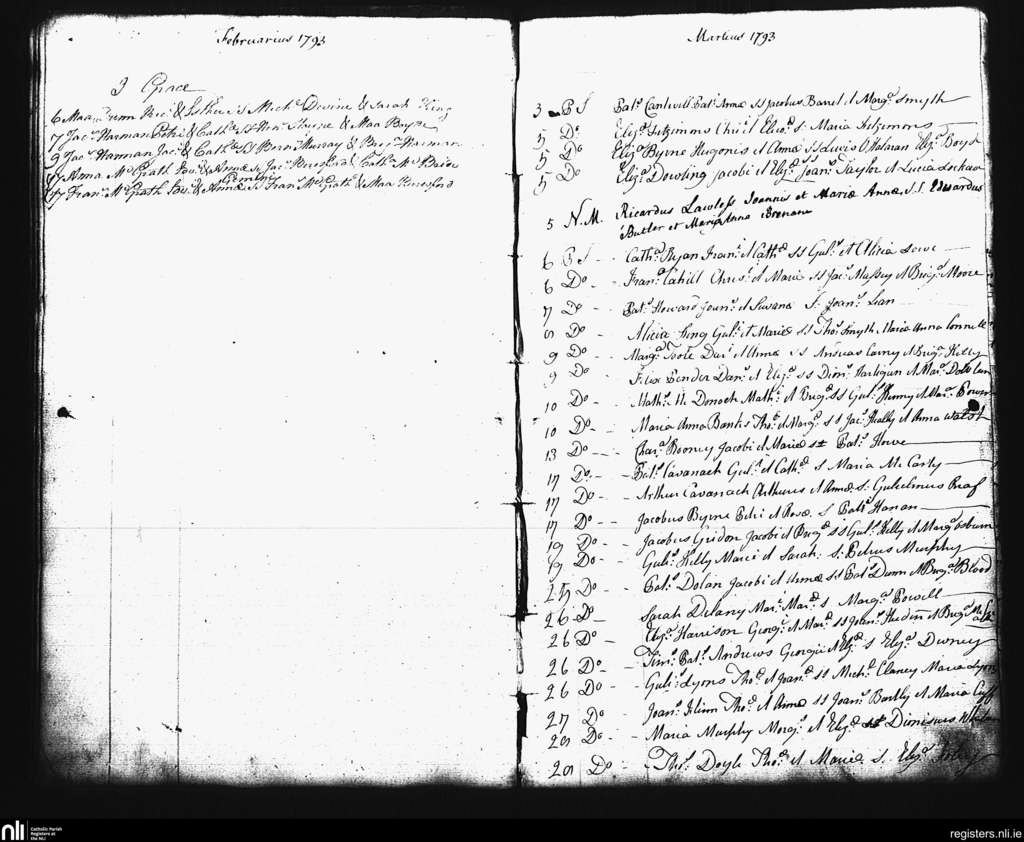 Februarius 1793
J Grace
6 Maa Dunn Mic: & Esther ss Michl Devine & Sarah King
7 Jacs Harman Petri & Cathæ ss & Maa Bayne
9 Jacs Hannan Jaci & Cathæ ss Bern: Murray & Brigt Harman
17 Anna McGrath & Annæ ss Jacs Beresford & Cath: McBride
17 Frans McGrath & Annæ ss Frans McGrath & Maa Beresford
Martius 1793
3 PS Pats Cantwell Pati Annæ ss Jacobus Barret et Margt Smyth
5 Do Eliza Fitzimmons Chrisi Elizæ S: Maria Fitzimons
5 Do Eliza Byrne Hugonis et Annæ ss Lewis O'Halaran Eliza Boyd
5 Do Eliza Dowling Jacobi et Elizæ ss Joans Taylor et Lucia
5 N.M. Ricardus Lawless Joannis et Mariæ Annæ S.S. Edwardus
Butler et Maria Anna Brenane
6 PS Catha Ryan Frani et Cathæ ss Guls et Alicia Lowe
6 Do Frans Cahill Chrisi et Mariæ ss Jacs Massey et Brigt Moore
7 Do Pats Howard Joani et Susanæ S: Joans Lian
8 Do Alicia King Guli et Mariæ ss Thos Smyth Maria Anna Connell
9 Do Marga Toole Dani et Annæ ss Andreas Carny et Brigt Kelly
9 Do Felix Bender Dani et Elizæ ss Dims Harlogun et Mara Dolan
10 Do Maths McDonoch Mathi et Brigæ ss Guls et Mara Power
10 Do Maria Anna Banks Thoi et Margæ ss Jacs Healy et Anna Walsh
13 Do Chara Rooney Jacobi et Mariæ ss Pats Howe
17 Do Pats Cavanach Guli et Cathæ S Maria McCarty
17 Do Arthur Cavanach Arthurus et Annæ S: Gulielmus
17 Do Jacobus Byrne Petri et Rosæ S Pats Hanan
19 Do Jacobus Gridon Jacobi et Brigæ ss Guls Kelly et Marga Osburn
19 Do Guls Kelly Marci et Sarah S: Petrus Murphy
25 Do Pats Dolan Jacobi et Annæ ss Pats Dunn et Briga Blood
26 Do Sarah Delany Mar: Mar: S Marga Powell
26 Do Eliza Harrison Georgi et Mar: ss Joans et Briga
26 Do Pats Andrews Georgii et Elizæ S Eliza Downey
26 Do Guls Lyons Thoi et Joanæ ss Michl Clancy Maria Lyons
27 Do Joans Flinn Thoi et Annæ ss Joans Bartly et Maria Cuff
28 Do Maria Murphy et Elizæ ss Dionisius
28 Do Thos Doyle Thoi et Mariæ S. Eliza
nli
Catholic Parish
Registers at
the NLI
registers.nli.ie